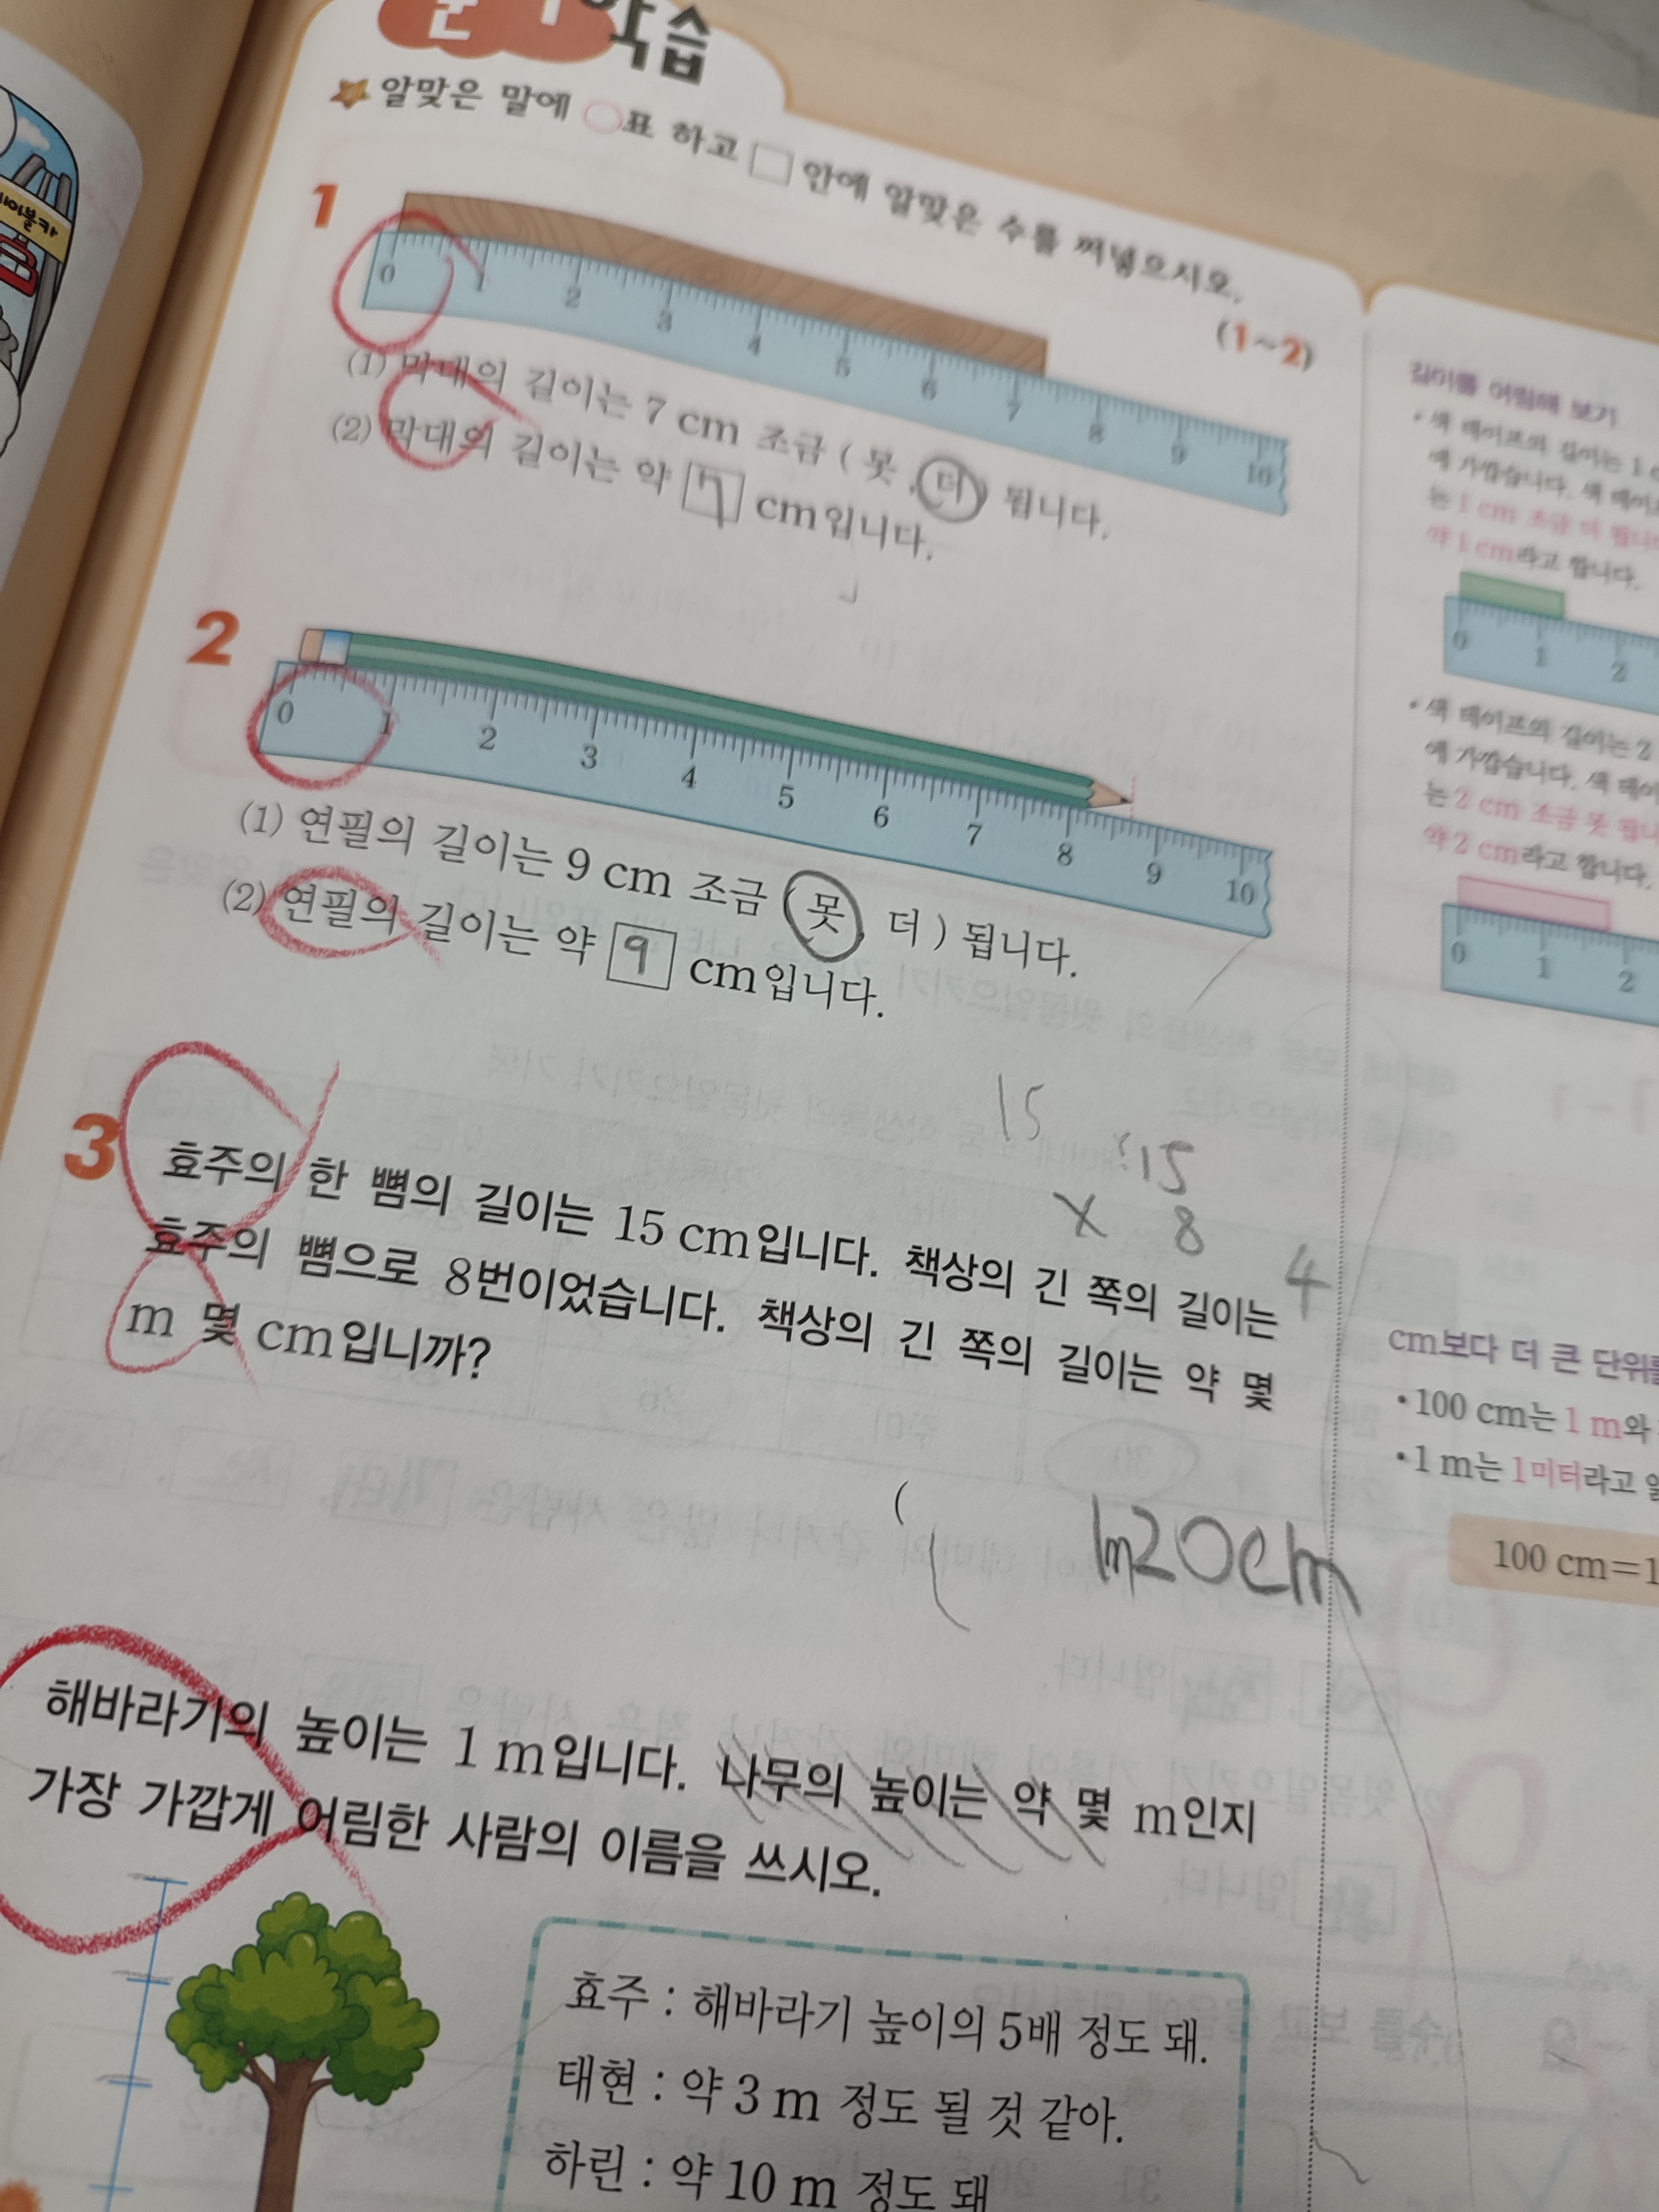 학습
알맞은 말에 ○표 하고 □ 안에 알맞은 수를 써넣으시오.
(1~2)
1
0 1 2 3 4 5 6 7 8 9 10
(1) 막대의 길이는 7 cm 조금 ( 못 , 더 ) 됩니다.
(2) 막대의 길이는 약 7 cm입니다.
2
0 1 2 3 4 5 6 7 8 9 10
(1) 연필의 길이는 9 cm 조금 ( 못 , 더 ) 됩니다.
(2) 연필의 길이는 약 9 cm입니다.
15
15
× 8
4
3 효주의 한 뼘의 길이는 15 cm입니다. 책상의 긴 쪽의 길이는
효주의 뼘으로 8번이었습니다. 책상의 긴 쪽의 길이는 약 몇
m 몇 cm입니까?
( 1m20cm
해바라기의 높이는 1 m입니다. 나무의 높이는 약 몇 m인지
가장 가깝게 어림한 사람의 이름을 쓰시오.
효주 : 해바라기 높이의 5배 정도 돼.
태현 : 약 3 m 정도 될 것 같아.
하린 : 약 10 m 정도 돼
길이를 어림해 보기
• 색 테이프의 길이는 1
에 가깝습니다. 색 테이
는 1 cm 조금 더 됩니
약 1 cm라고 합니다.
0 1 2
• 색 테이프의 길이는 2
에 가깝습니다. 색 테이
는 2 cm 조금 못 됩니
약 2 cm라고 합니다.
0 1 2
cm보다 더 큰 단위
• 100 cm는 1 m와
• 1 m는 1미터라고
100 cm=1